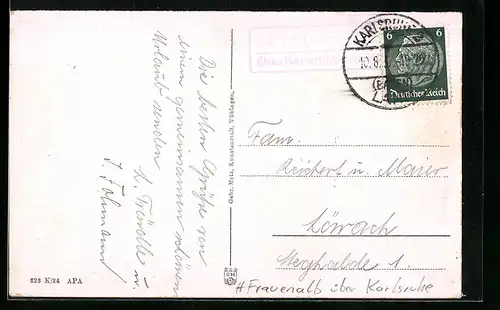 Die besten Grüße von
einem gemeinsamen schönen
Urlaub senden
Gebr. Metz, Kunstanstalt, Tübingen.
623 K/24 APA
(über Karlsruhe
KARLSRUHE
10.8.
(BADEN)
6 6
Deutsches Reich
Fam.
Reichert u. Maier
Lörrach
Steghalde 1.
#Frauenalb über Karlsruhe